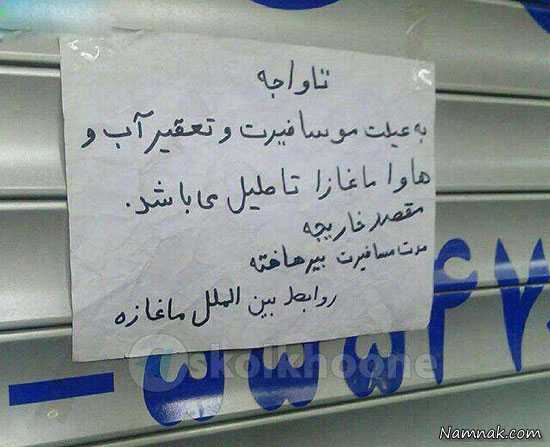 تاواجه
به عیلت موسافیرت و تعقیر آب و
هاوا ماغازا تاطیل می باشد.
مقصد خاریجه
مدت مسافیرت بیرهافته
روابط بین الملل ماغازه
skolkhoone
Namnak.com